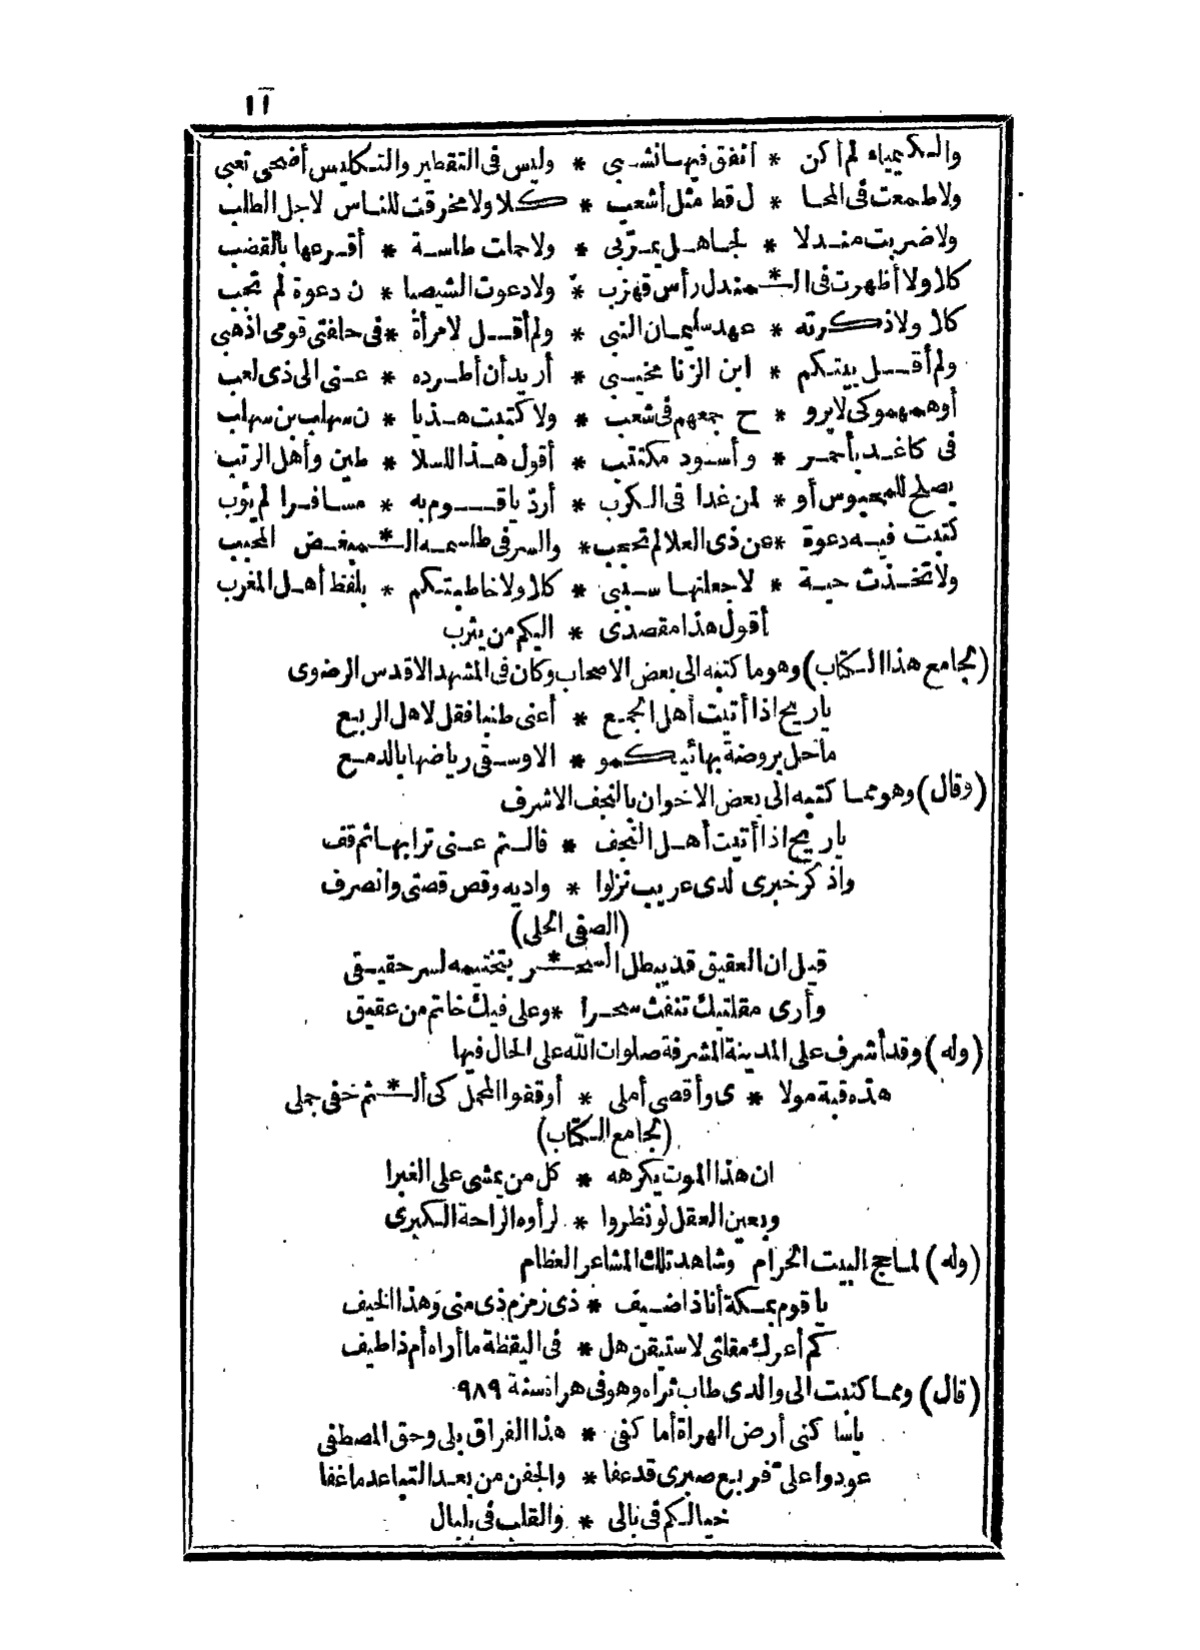 ١١
والكيمياء لم أكن * أنفق فيها نشبى * وليس فى التقطير والتكليس أضحى تعبى
ولا طمعت فى المحا * ل قط مثل أشعب * كلا ولا مخرقت للناس لاجل الطلب
ولا ضربت مندلا * لجاهل يمر بى * ولا حملت طاسة * أقرعها بالقضب
كلا ولا أظهرت فى الـ * مندل رأس قهزب * ولا دعوت الشيصبا * ن دعوة لم تجب
كلا ولا ذكرته * عهد سليمان النبى * ولم أقل لامرأة * فى حلقتى قومى اذهبى
ولم أقل بينكم * ابن الزنا مخيبى * أريد أن أطرده * عنى الى ذى لعب
أوهمهمو كى لا يرو * ح جمعهم فى شعب * ولا كتبت هذيا * ن سهلب بن سهلب
فى كاغد بأحمر * وأسود مكتتب * أقول هذا للسلا * طين وأهل الرتب
يصلح للمحبوس أو * لمن غدا فى الكرب * أرد يا قوم به * مسافرا لم يؤب
كتبت فيه دعوة * عن ذى العلا لم تحجب * والسر فى طلسمه الـ * مبغض المحبب
ولا تخذت حية * لاجعلنها سببى * كلا ولا خاطبتكم * بلفظ أهل المغرب
أقول هذا مقصدى * اليكم من يثرب
(لجامع هذا الكتاب) وهو ما كتبه الى بعض الاصحاب وكان فى المشهد الاقدس الرضوى
يا ريح اذا أتيت أهل الجمع * أعنى طنبا فقل لاهل الربع
ما حل بروضة بهائيكمو * الا وسقى رياضها بالدمع
(وقال) وهو مما كتبه الى بعض الاخوان بالنجف الاشرف
يا ريح اذا أتيت أهل النجف * فالثم عنى ترابها ثم قف
واذكر خبرى لدى عريب نزلوا * واديه وقص قصتى وانصرف
(الصفى الحلى)
قيل ان العقيق قد يبطل السحـ * ـر بتختيمه لسر حقيقى
وأرى مقلتيك تنفث سحرا * وعلى فيك خاتم من عقيق
(وله) وقد أشرف على المدينة المشرفة صلوات الله على الحال فيها
هذه قبة مولا * ى وأقصى أملى * أوقفوا المحمل كى ألـ * ـثم خفى جملى
(لجامع الكتاب)
ان هذا الموت يكرهه * كل من يمشى على الغبرا
وبعين العقل لو نظروا * لرأوه الراحة الكبرى
(وله) لما حج البيت الحرام وشاهد تلك المشاعر العظام
يا قوم بمكة أنا ذا ضيف * ذى زمزم ذى منى وهذا الخيف
كم أعرك مقلتى لاستيقن هل * فى اليقظة ما أراه أم ذا طيف
(قال) ومما كتبت الى والدى طاب ثراه وهو فى هراة سنة ٩٨٩
يا ساكنى أرض الهراة أما كفى * هذا الفراق بلى وحق المصطفى
عودوا على فربع صبرى قد عفا * والجفن من بعد التباعد ما غفا
خيالكم فى بالى * والقلب فى بلبال